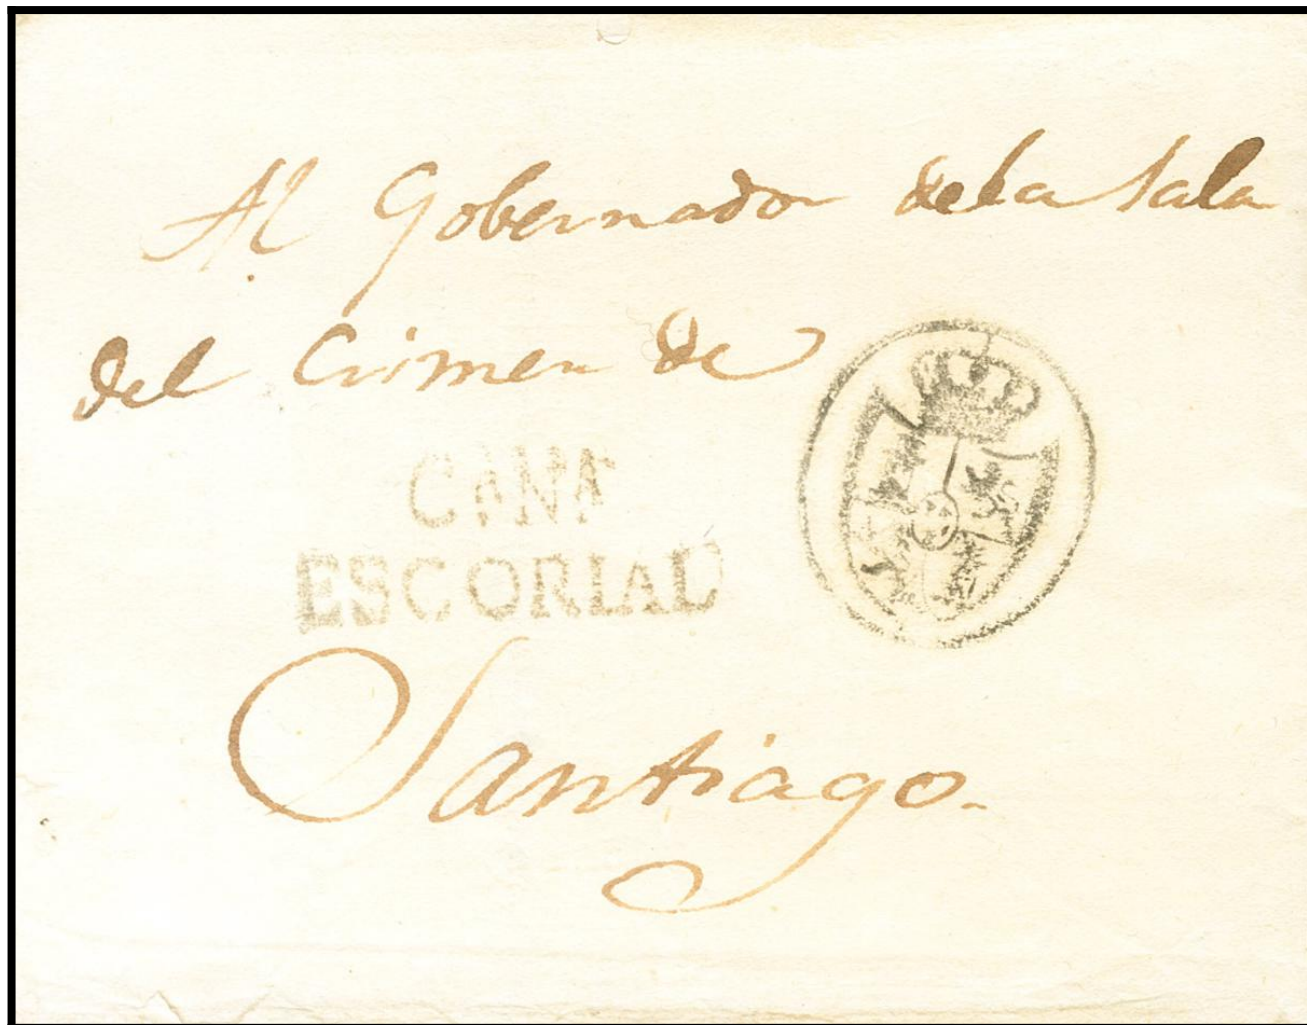 Al Gobernador de la Sala
del Crimen de
ESCORIAL
Santiago.